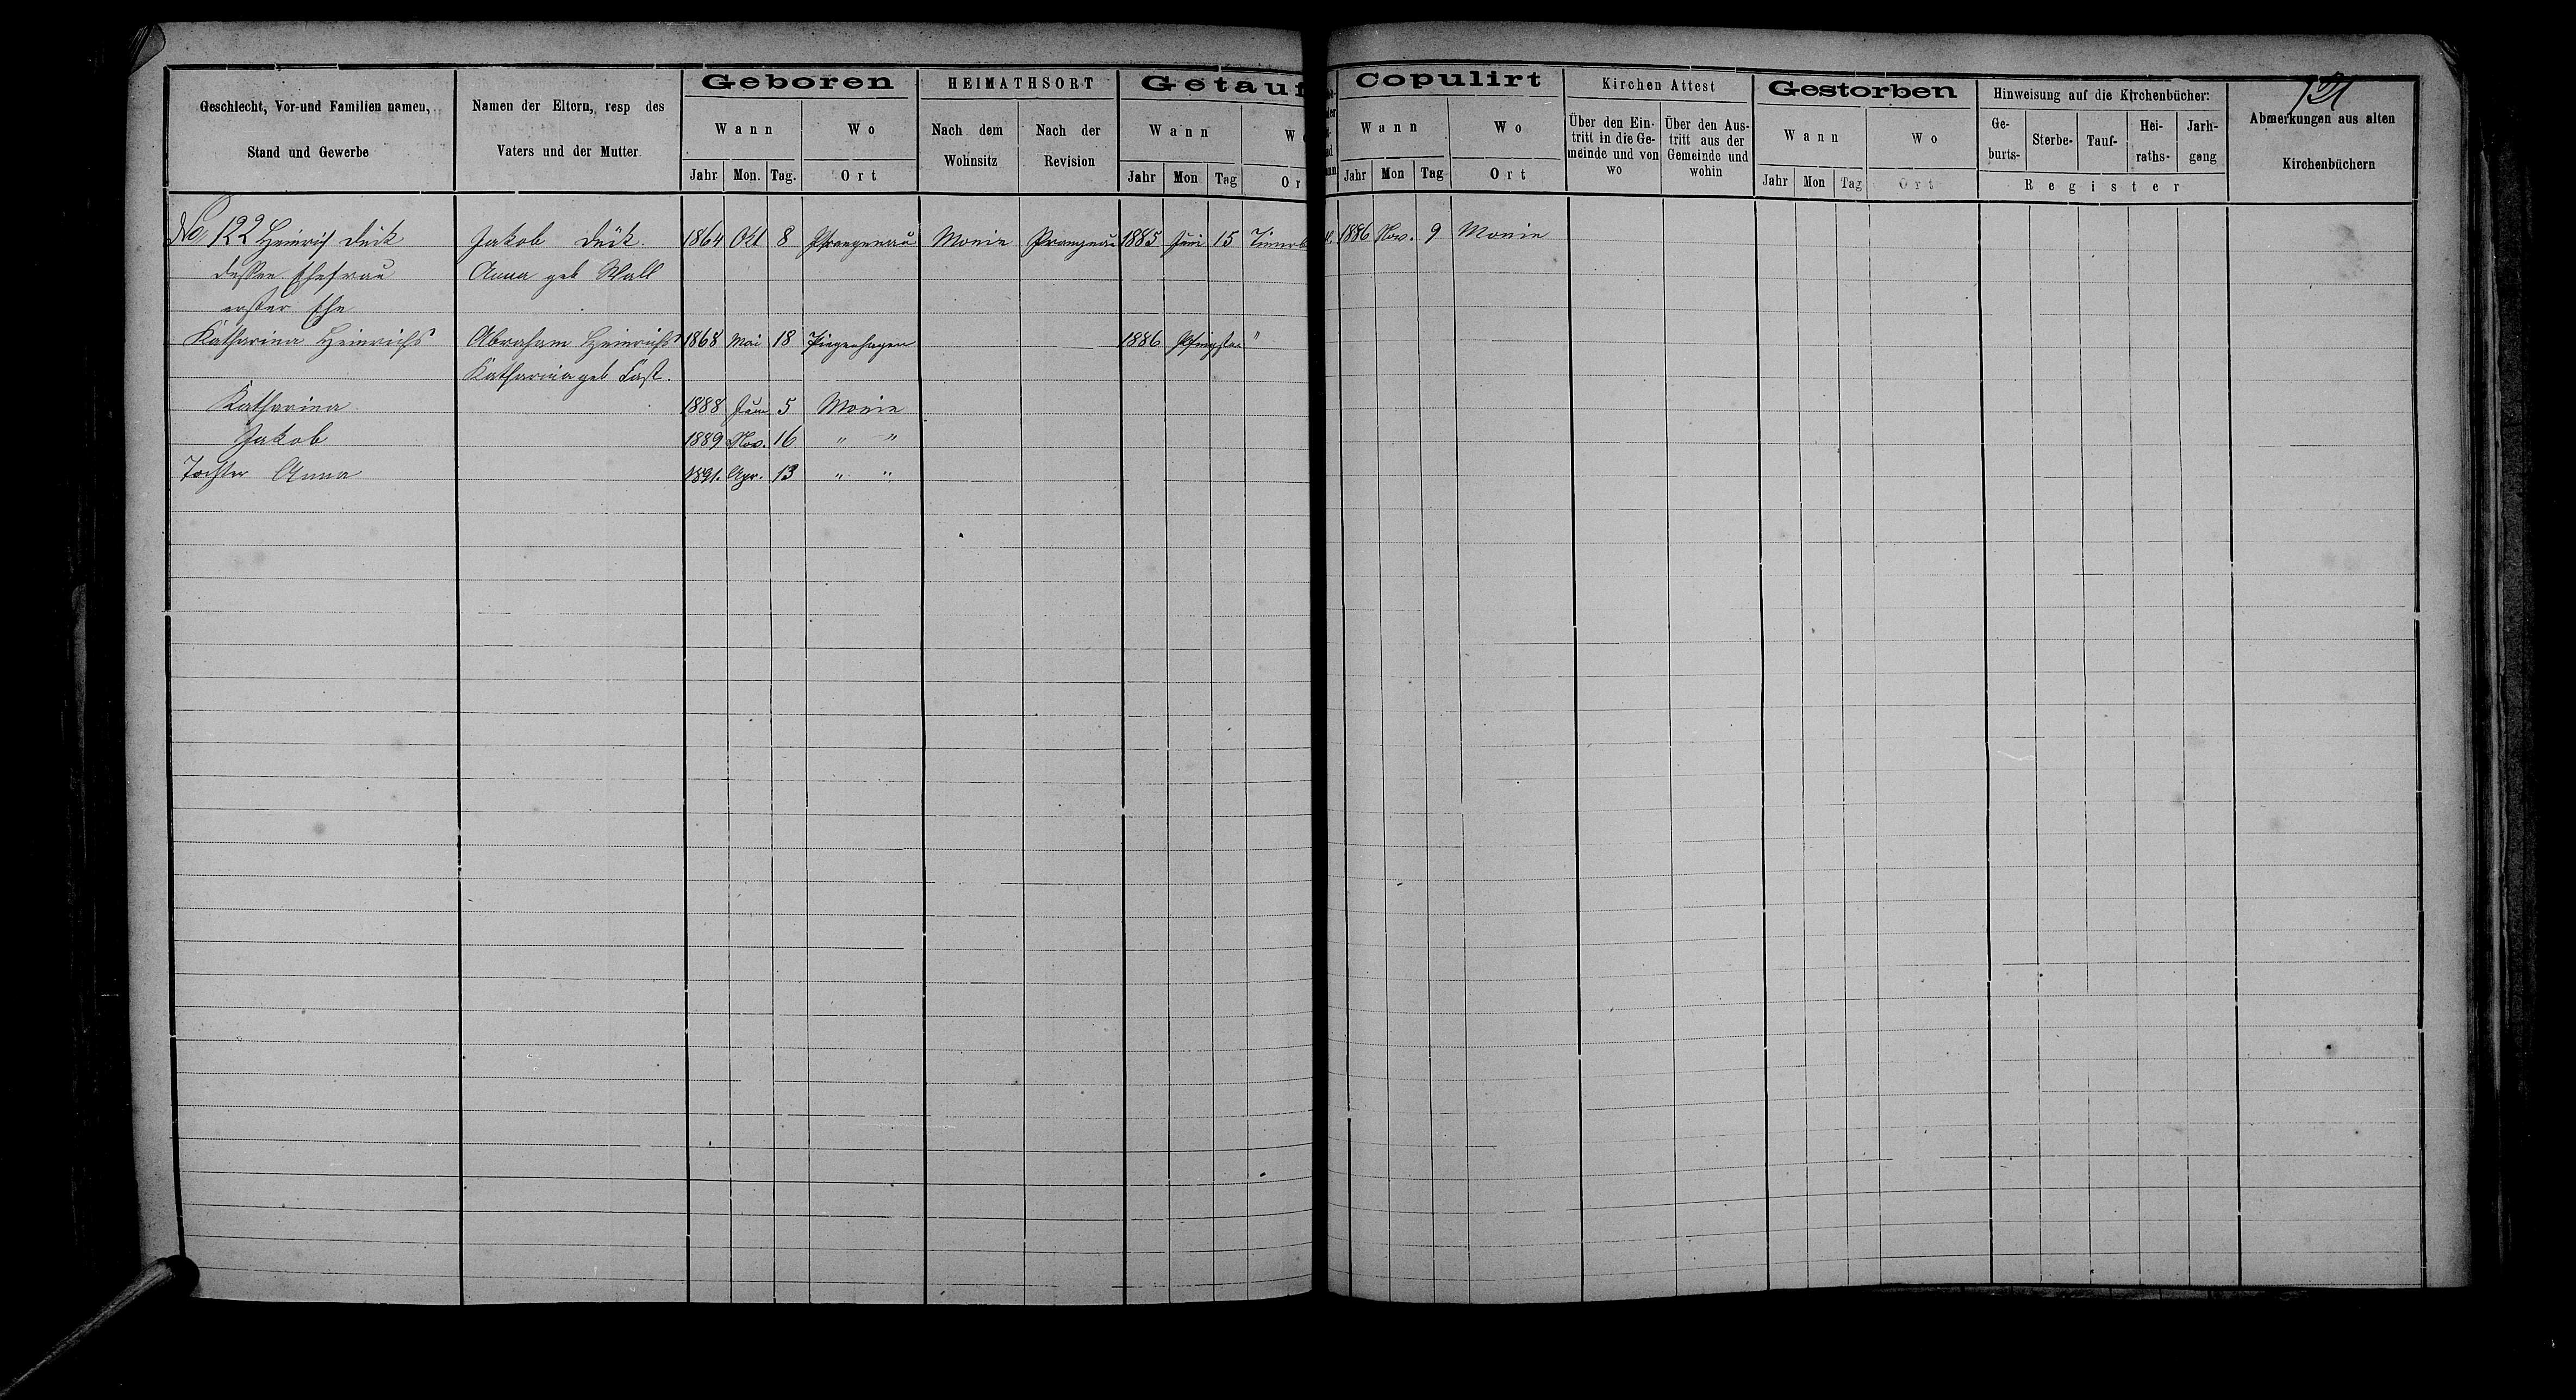 121
Geschlecht, Vor-und Familien namen,
Stand und Gewerbe
Namen der Eltern, resp des
Vaters und der Mutter
Geboren
Wann
Jahr. Mon. Tag.
Wo
Ort
HEIMATHSORT
Nach dem
Wohnsitz
Nach der
Revision
Getauf
Wann
Jahr Mon Tag
Wo
Or
Copulirt
Wann
Jahr Mon Tag
Wo
Ort
Kirchen Attest
Über den Ein-
tritt in die Ge-
meinde und von
wo
Über den Aus-
tritt aus der
Gemeinde und
wohin
Gestorben
Wann
Jahr Mon Tag
Wo
Ort
Hinweisung auf die Kirchenbücher:
Ge-
burts-
Sterbe-
Tauf-
Hei-
raths-
Jarh-
gang
Register
Abmerkungen aus alten
Kirchenbüchern
No 122 Heinrich Dück Jakob Dück. 1864 Okt 8 Prangenau Monin Prangnau 1885 Juni 15 1886 Nov. 9 Monin
dessen Ehefrau Anna geb Wall
erster Ehe
Katharina Heinrichs Abraham Heinrichs 1868 Mai 18 1886 Pfingsten "
Katharina geb Fast.
Katharina 1888 5 Monin
Jakob 1889 Nov. 16 " "
Tochter Anna 1891. Apr. 13 " "